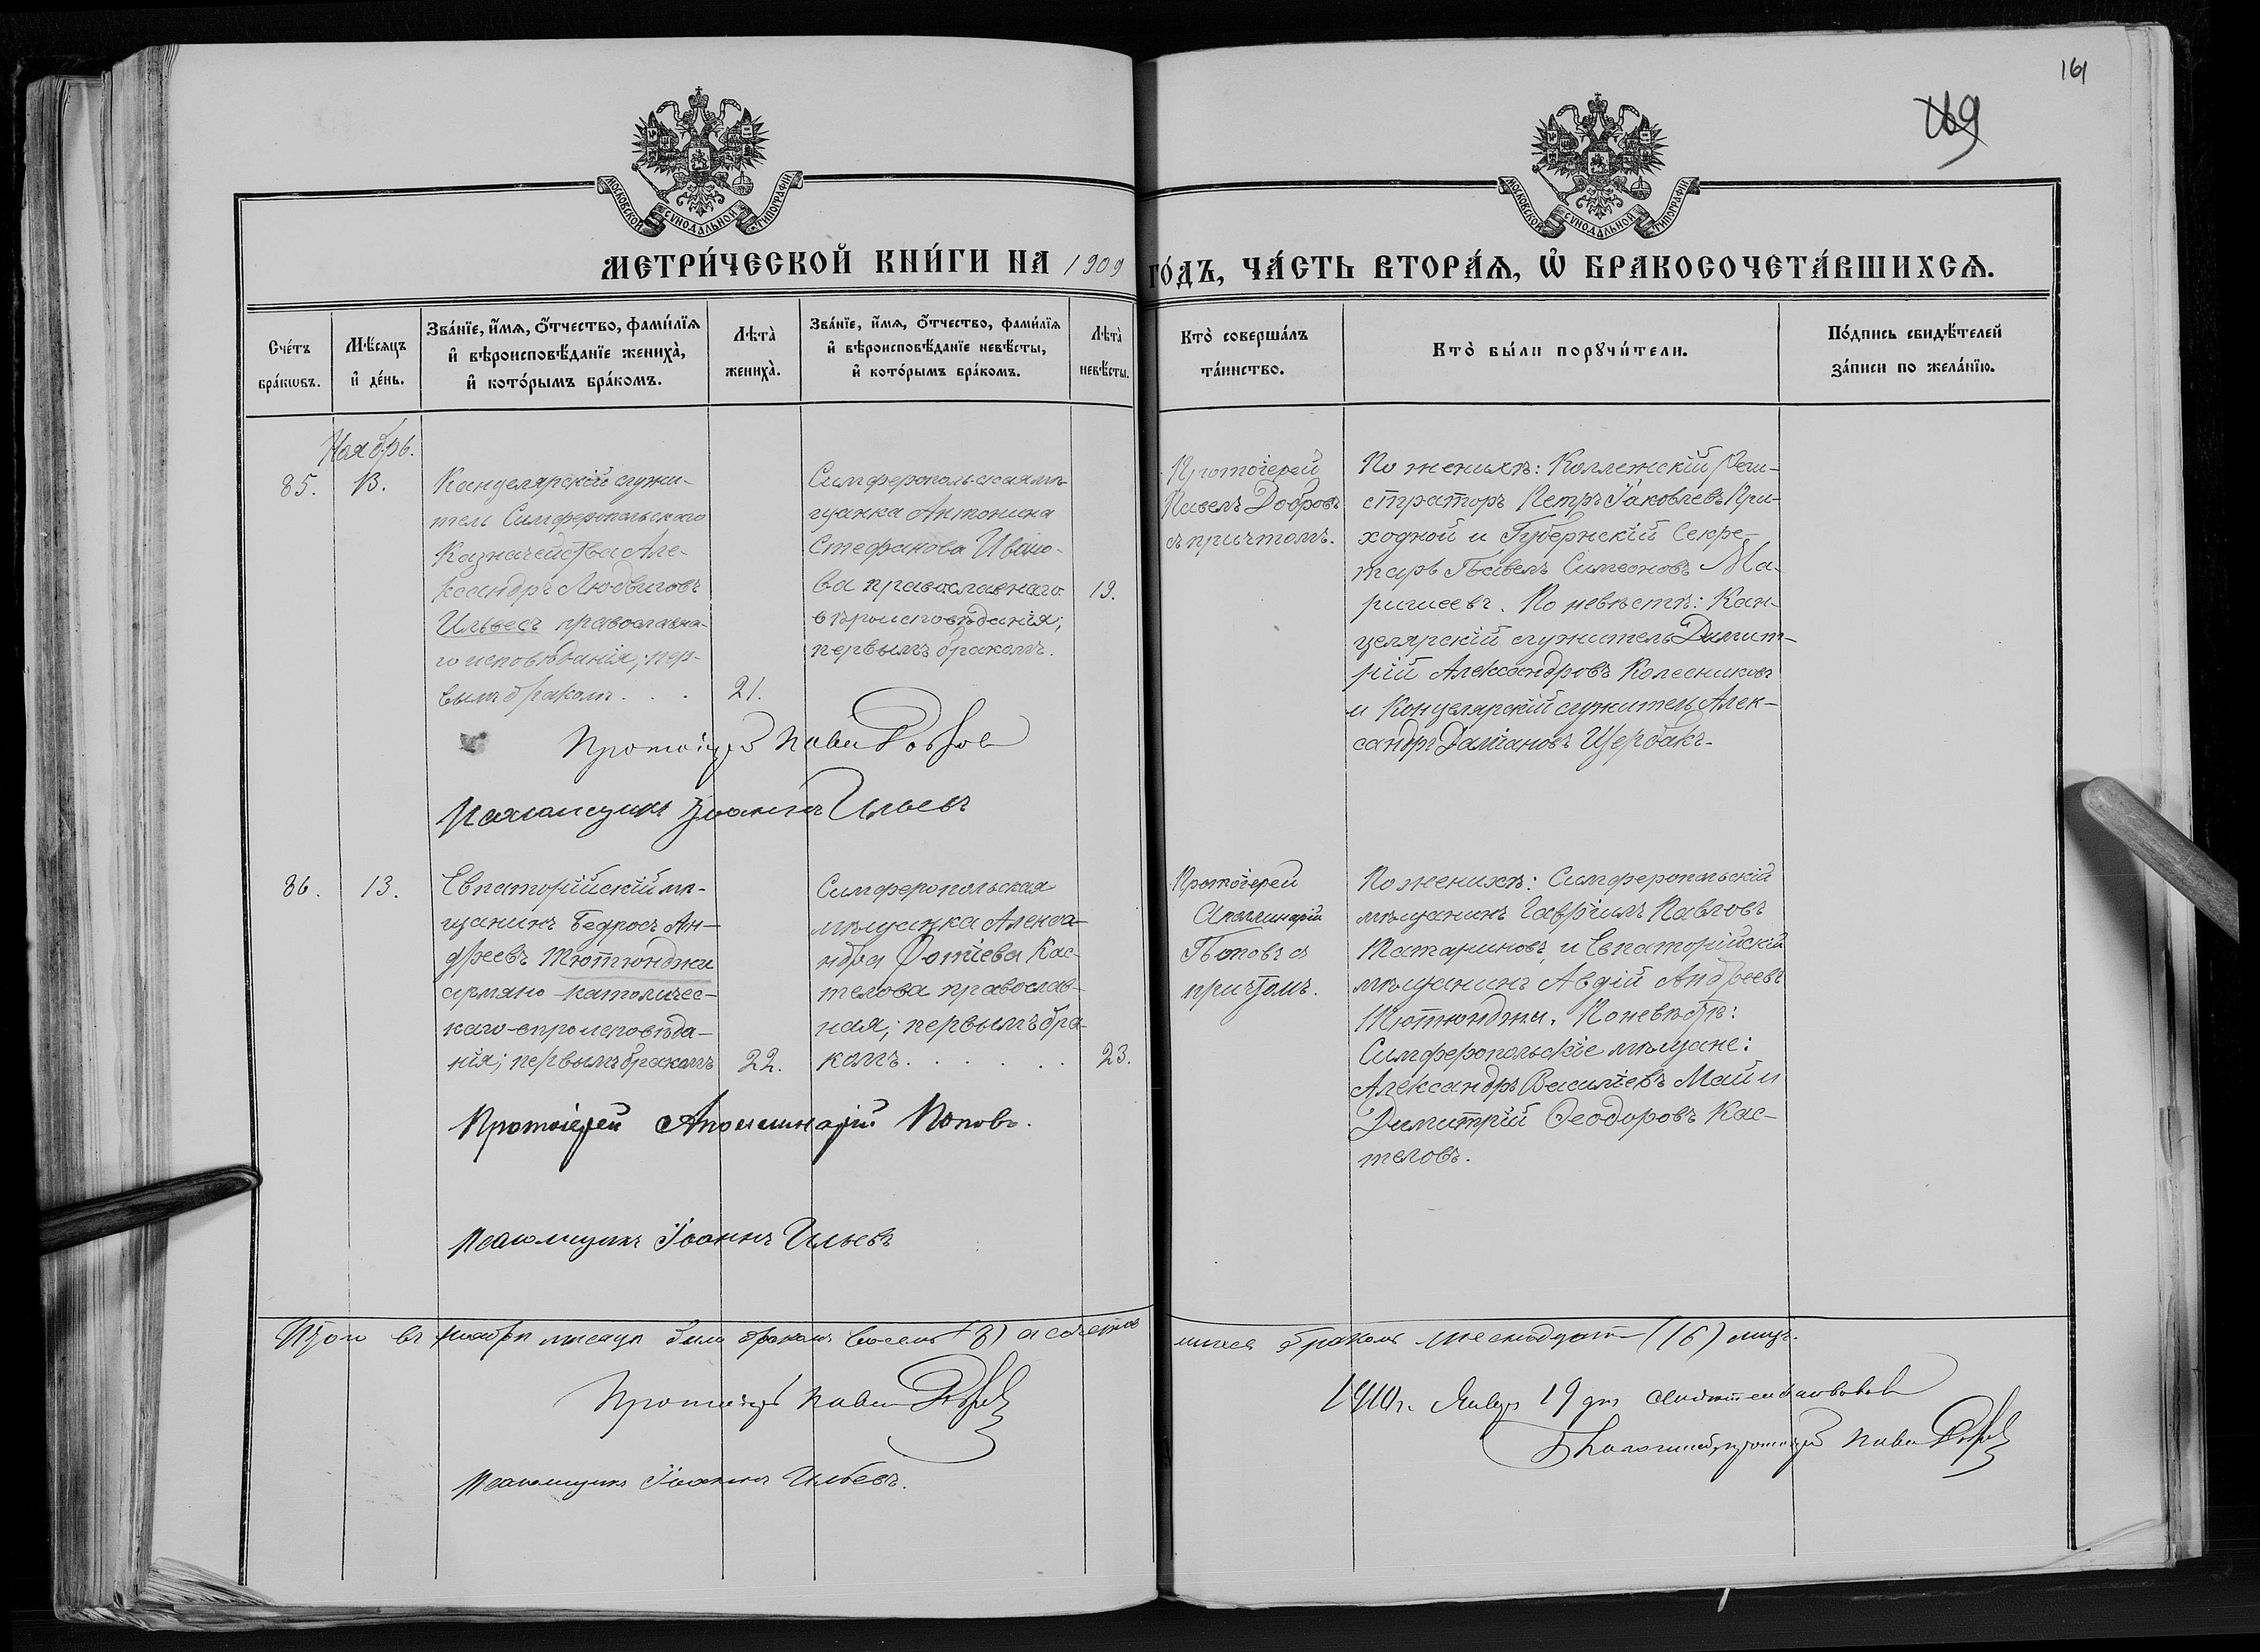 161
169
МОСКОВСКОЙ СѴНОДАЛЬНОЙ ТИПОГРАФІИ
МОСКОВСКОЙ СѴНОДАЛЬНОЙ ТИПОГРАФІИ
МЕТРИ́ЧЕСКОЙ КНИ́ГИ НА 1909 ГО́ДЪ, ЧА́СТЬ ВТОРА́Ѧ, Ѡ҆ БРАКОСОЧЕТА́ВШИХСѦ.
Сче́тъ
бра́кѡвъ.
Мѣ́сяцъ
и҆ де́нь.
Зва́нїе, и҆́мѧ, ѻ҆́тчество, фами́лїѧ
и҆ вѣроисповѣ́данїе жениха̀,
и҆ кото́рымъ бра́комъ.
Лѣта̀
жениха̀.
Зва́нїе, и҆́мѧ, ѻ҆́тчество, фами́лїѧ
и҆ вѣроисповѣ́данїе невѣ́сты,
и҆ кото́рымъ бра́комъ.
Лѣта̀
невѣ́сты.
Кто̀ соверша́лъ
та́инство.
Кто̀ бы́ли порꙋчи́тели.
По́дпись свидѣ́телей
за́писи по жела́нїю.
Ноябрь.
85.
13.
Канцелярскій служи-
тель Симферопольскаго
Казначейства Але-
ксандръ Людвиговъ
Ильвесъ православна-
го исповѣданія; пер-
вымъ бракомъ . . .
21.
Симферопольская мѣ-
щанка Антонина
Стефанова Ивано-
ва православнаго
вѣроисповѣданія;
первымъ бракомъ.
19.
Протоіерей
Павелъ Добровъ
съ причтомъ.
По женихѣ: Коллежскій Реги-
страторъ Петръ Іаковлевъ При-
ходной и Губернскій Секре-
тарь Павелъ Симеоновъ Ма-
. По невѣстѣ: Кан-
целярскій служитель Димит-
рій Александровъ Колесниковъ
и Канцелярскій служитель Алек-
сандръ Даміановъ Щербакъ.
Протоіерей Павелъ Добровъ
Псаломщикъ Іоаннъ Ильевъ
86.
13.
Евпаторійскій мѣ-
щанинъ Бедросъ Ан-
дреевъ Тютюнджи
армяно-католичес-
каго вѣроисповѣда-
нія; первымъ бракомъ
22.
Симферопольская
мѣщанка Алекса-
ндра Фотіева Кас-
телова православ-
ная; первымъ бра-
комъ. . . . . .
23.
Протоіерей
Аполлинарій
Поповъ съ
причтомъ.
По женихѣ: Симферопольскій
мѣщанинъ Гавріилъ Павловъ
Татариновъ и Евпаторійскій
мѣщанинъ Авдій Андреевъ
Тютюнджи. По невѣстѣ:
Симферопольскіе мѣщане:
Александръ Василіевъ Май и
Димитрій Ѳеодоровъ Кас-
теловъ.
Протоіерей Аполлинарій Поповъ.
Псаломщикъ Іоаннъ Ильевъ
Итого въ ноябрѣ мѣсяцѣ было браковъ восемь (8) а сочетав
шихся бракомъ шестнадцать (16) лицъ.
Протоіерей Павелъ Добровъ
Псаломщикъ Іоаннъ Ильевъ.
1910 г. Января 19 дня свидѣтельствовалъ
Благочинный, протоіерей Павелъ Добровъ